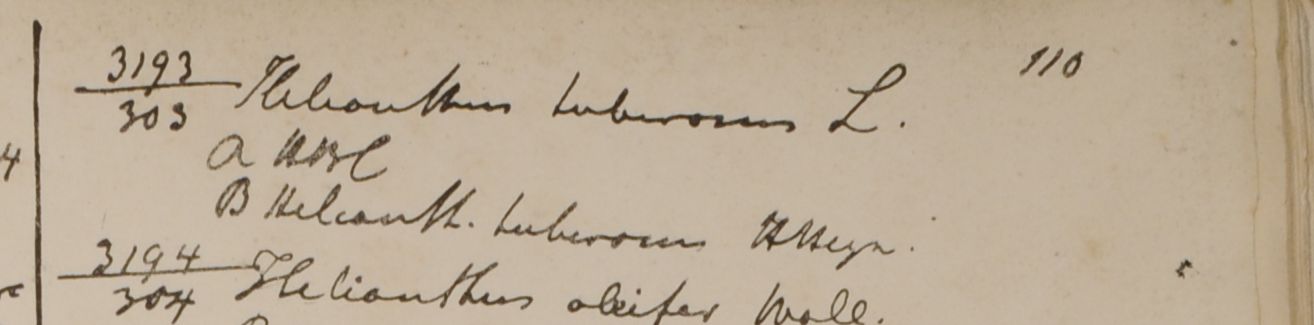 3193 Helianthus tuberosus L. 110
303
a HBC
B Helianth. tuberosus HHeyn.
3194 Helianthus oleifer Wall.
304